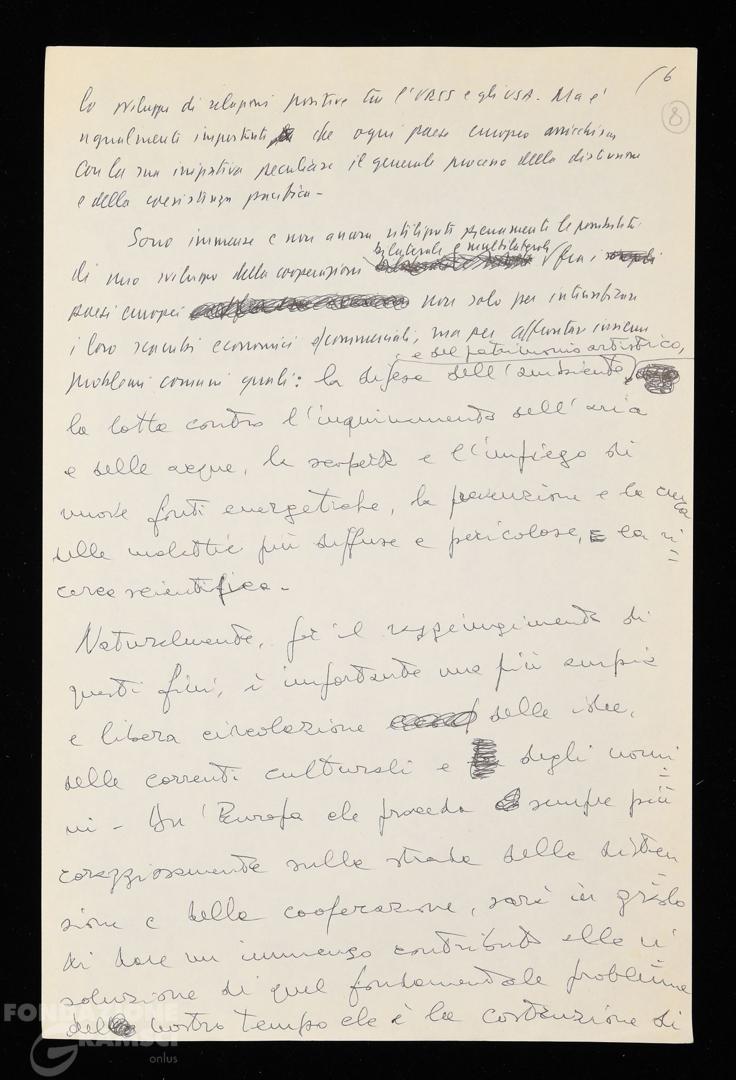 /6
8
lo sviluppo di relazioni positive tra l'URSS e gli USA. Ma è
ugualmente importante che ogni paese europeo arricchisca
con la sua iniziativa peculiare il generale processo della distensione
e della coesistenza pacifica -
Sono immense e non ancora utilizzate pienamente le possibilità
bilaterale e multilaterale
di uno sviluppo della cooperazione fra i
paesi europei non solo per intensificare
i loro scambi economici e commerciali, ma per affrontare insieme
e del patrimonio artistico,
problemi comuni quali: la difesa dell'ambiente,
la lotta contro l'inquinamento dell'aria
e delle acque, la scoperta e l'impiego di
nuove fonti energetiche, la prevenzione e la cura
delle malattie più diffuse e pericolose, la ri
cerca scientifica -
Naturalmente, per il raggiungimento di
questi fini, è importante una più ampia
e libera circolazione delle idee,
delle correnti culturali e degli uomi
ni - Un'Europa che proceda sempre più
coraggiosamente sulla strada della disten
sione e della cooperazione, sarà in grado
di dare un immenso contributo alla ri
soluzione di quel fondamentale problema
del nostro tempo che è la costruzione di
FONDAZIONE
GRAMSCI
onlus